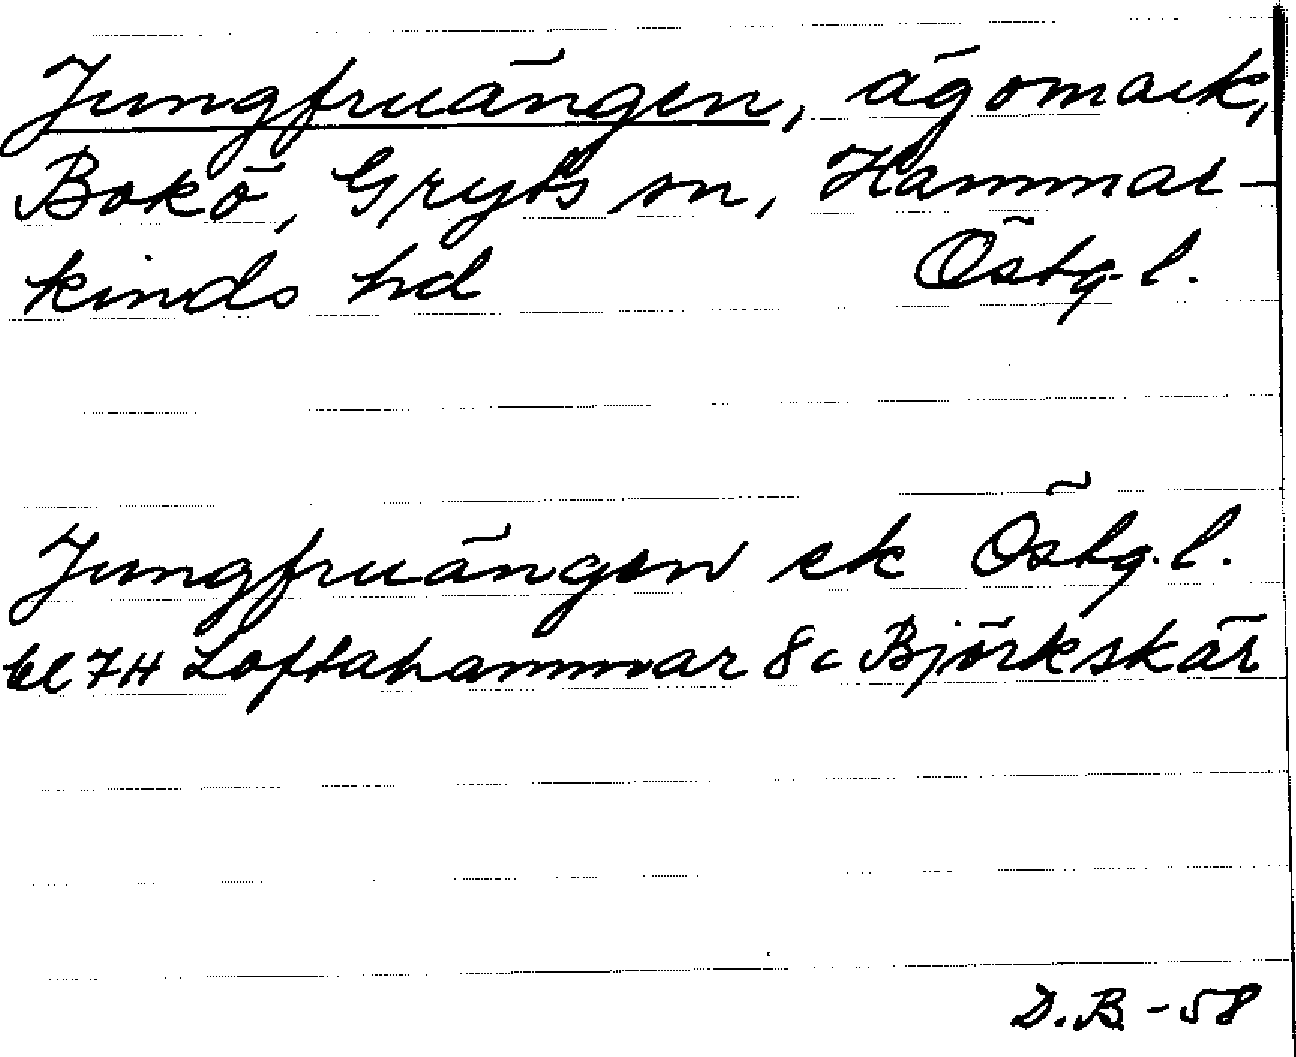 Jungfruängen, ägomark,
Bokö, Gryts sn, Hammar-
kinds hd Östg. l.
Jungfruängen ek Östg. l.
bl 7H Loftahammar 8c Björkskär
D.B -58